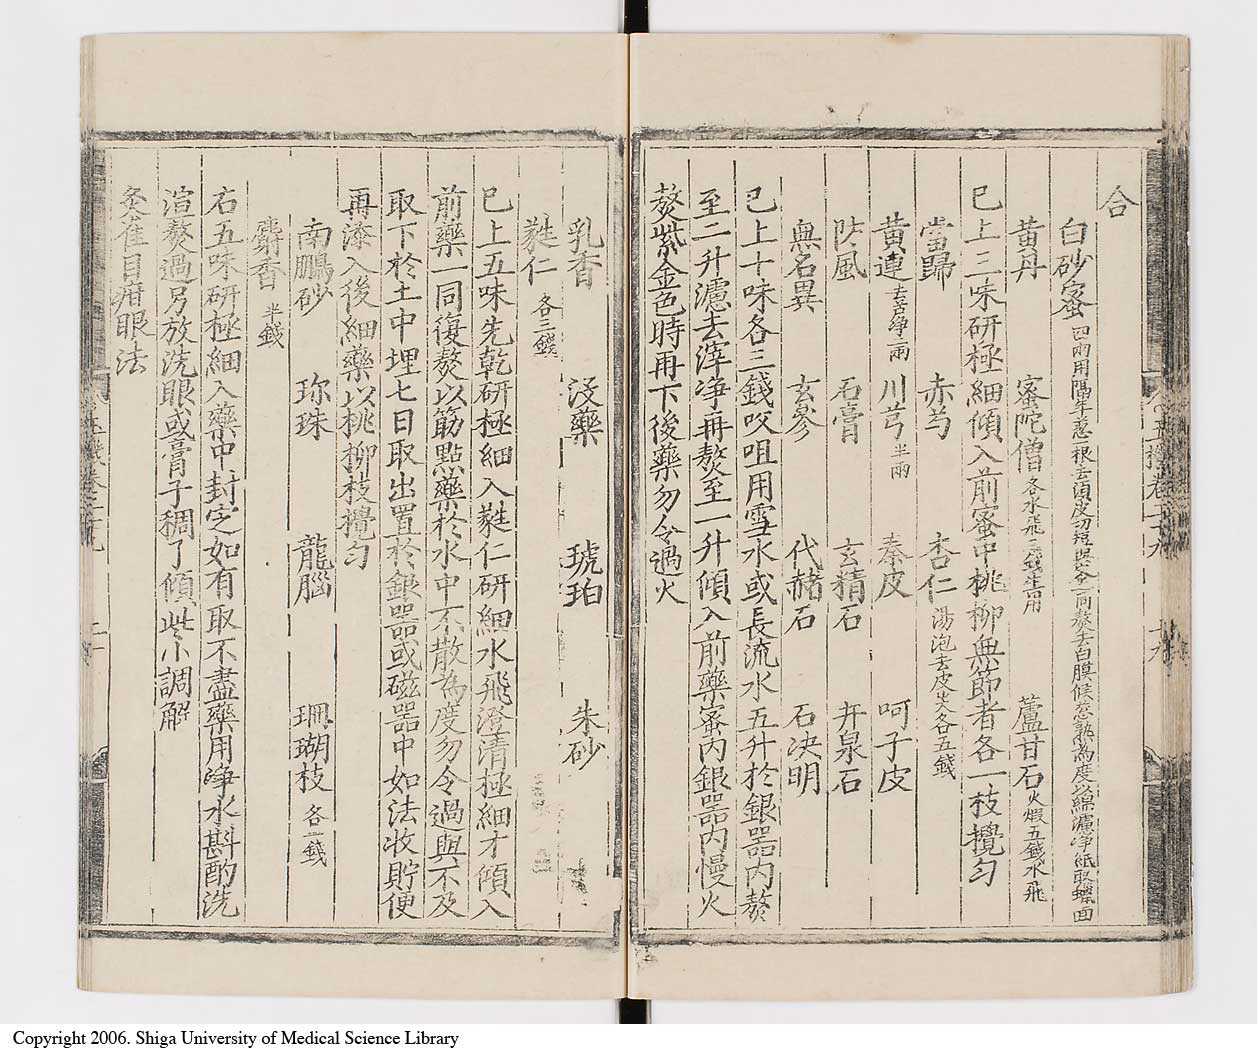 合
白砂蜜四兩用隔年葱一根去鬚皮切短與蜜一同熬去白膜候葱熟為度以綿濾淨紙取蠟面
黃丹 密陀僧各水飛三錢生用 蘆甘石火煅五錢水飛
已上三味研極細傾入前蜜中桃柳無節者各一枝攪匀
當歸 赤芍 杏仁湯泡去皮尖各五錢
黃連去芦净一兩 川芎半兩 秦皮 呵子皮
防風 石膏 玄精石 井泉石
無名異 玄參 代赭石 石决明
已上十味各三錢㕮咀用雪水或長流水五升於銀器内熬
至二升濾去滓净再熬至一升傾入前藥蜜内銀器内慢火
熬紫金色時再下後藥勿令過火
乳香 沒藥 琥珀 朱砂
蕤仁各三錢
已上五味先乾研極細入蕤仁研細水飛澄清極細才傾入
前藥一同復熬以筯點藥於水中不散為度勿令過與不及
取下於土中埋七日取出置於銀器或磁器中如法收貯便
再漆入後細藥以桃柳枝攪匀
南鵬砂 珎珠 龍腦 珊瑚枝各一錢
麝香半錢
右五味研極細入藥中封定如有取不盡藥用净水斟酌洗
渲熬過另放洗眼或膏子稠了傾些小調解
灸雀目疳眼法
Copyright 2006. Shiga University of Medical Science Library